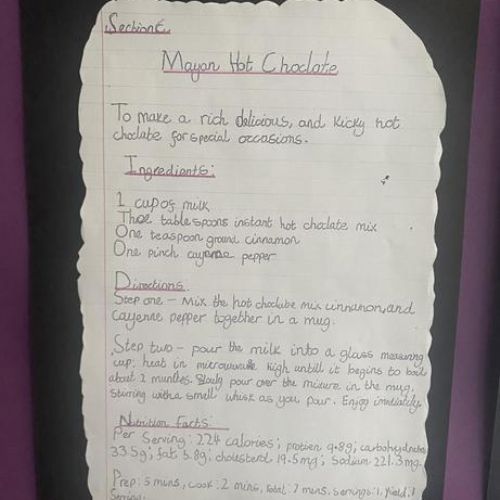 Section C
Mayan Hot Choclate
To make a rich delicious, and kicky hot
choclate for special occasions.
Ingredients:
1 cup of milk
Three table spoons instant hot choclate mix
One teaspoon ground cinnamon
One pinch cayenne pepper
Directions
Step one - Mix the hot choclate mix cinnamon, and
Cayenne pepper together in a mug.
Step two - pour the milk into a glass measuring
cup: heat in microwave high untill it begins to boil
about 2 munites. Slowly pour over the mixure in the mug,
stirring with a smell whisk as you pour. Enjoy imidiatley
Nutrition facts:
Per Serving: 224 calories; protien 9.8g; carbohydrates
33.5g; fat 5.8g; cholesterol 19.5mg; Sodium 221.3mg.
Prep: 5 mins, cook: 2 mins, total: 7 mins, servings: 1, Yield: 1
Serving